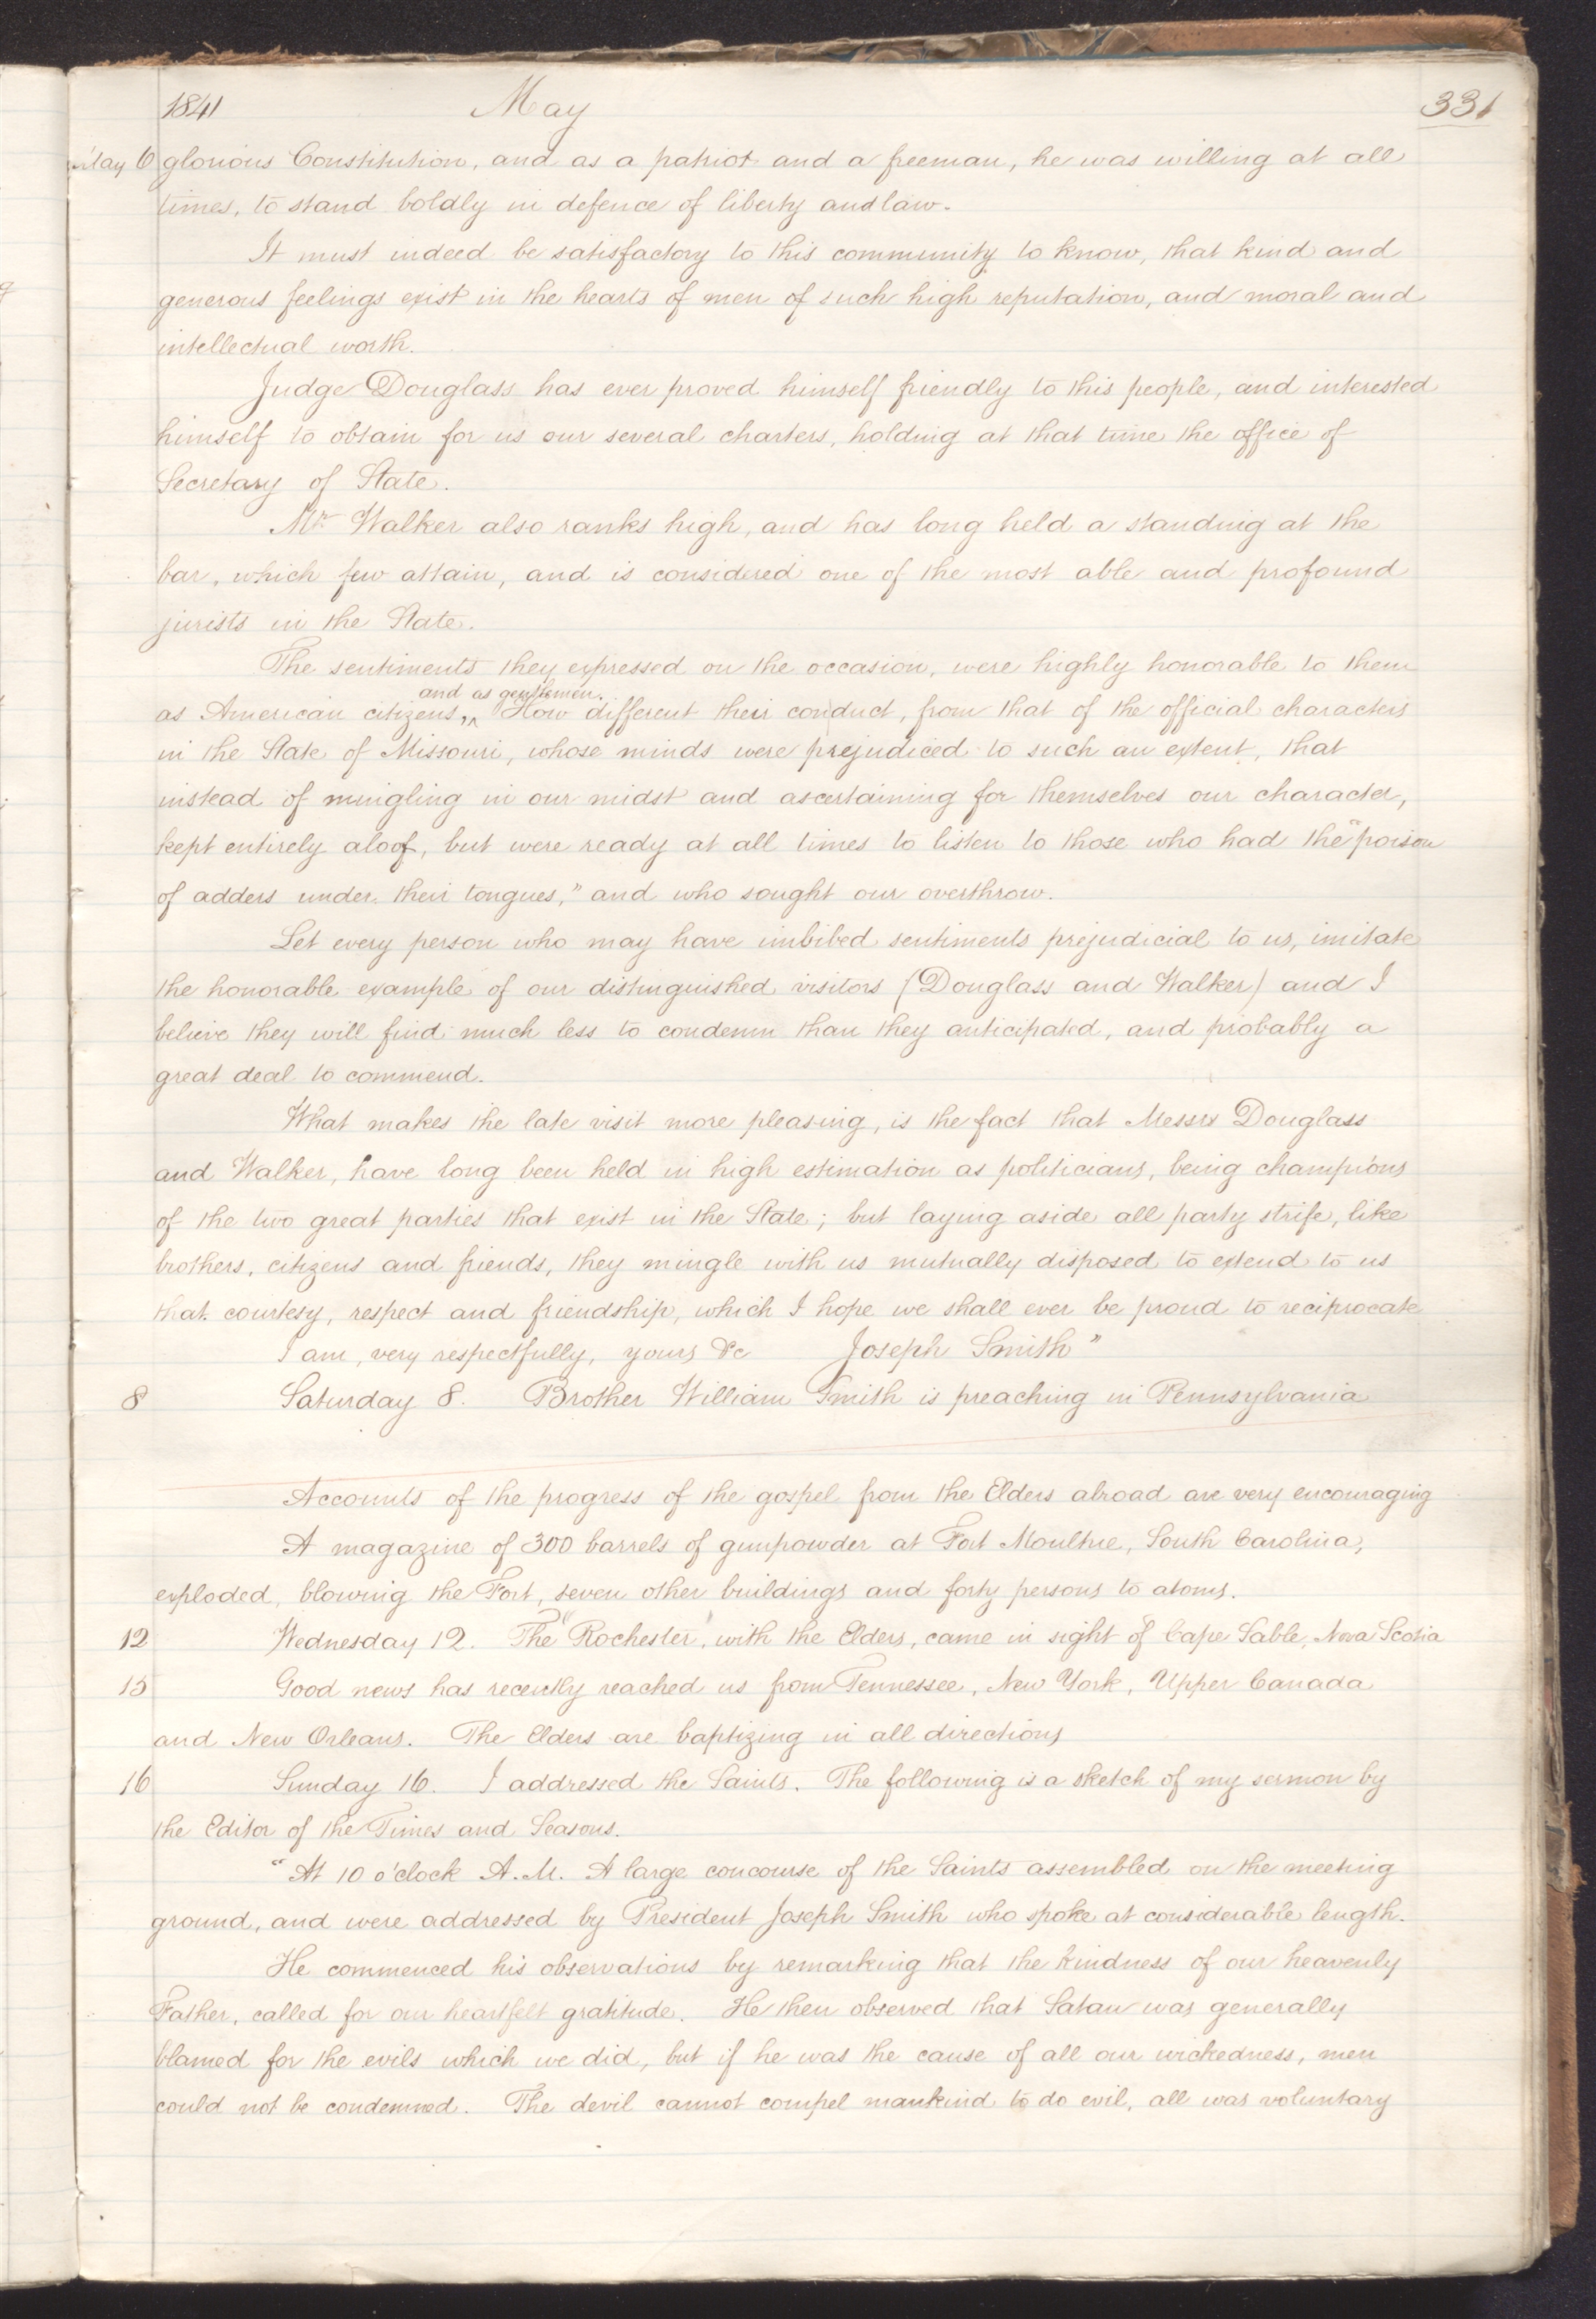 1841 May 331
May 6 glorious Constitution, and as a patriot and a freeman, he was willing at all
times, to stand boldly in defence of liberty and law.
It must indeed be satisfactory to this community to know, that kind and
generous feelings exist in the hearts of men of such high reputation, and moral and
intellectual worth.
Judge Douglass has ever proved himself friendly to this people, and interested
himself to obtain for us our several charters, holding at that time the office of
Secretary of State.
Mr Walker also ranks high, and has long held a standing at the
bar, which few attain, and is considered one of the most able and profound
jurists in the State.
The sentiments they expressed on the occasion, were highly honorable to them
and as gentlemen.
as American citizens, ^ How different their conduct, from that of the official characters
in the State of Missouri, whose minds were prejudiced to such an extent, that
instead of mingling in our midst and ascertaining for themselves our character,
kept entirely aloof, but were ready at all times to listen to those who had the "poison
of adders under their tongues," and who sought our overthrow.
Let every person who may have imbibed sentiments prejudicial to us, imitate
the honorable example of our distinguished visitors (Douglass and Walker) and I
believe they will find much less to condemn than they anticipated, and probably a
great deal to commend.
What makes the late visit more pleasing, is the fact that Messrs Douglass
and Walker, have long been held in high estimation as politicians, being champions
of the two great parties that exist in the State; but laying aside all party strife, like
brothers, citizens and friends, they mingle with us mutually disposed to extend to us
that courtesy, respect and friendship, which I hope we shall ever be proud to reciprocate
I am, very respectfully, yours &c Joseph Smith"
8 Saturday 8. Brother William Smith is preaching in Pennsylvania
Accounts of the progress of the gospel from the Elders abroad are very encouraging
A magazine of 300 barrels of gunpowder at Fort Moultrie, South Carolina,
exploded, blowing the Fort, seven other buildings and forty persons to atoms.
12 Wednesday 12. The "Rochester", with the Elders, came in sight of Cape Sable, Nova Scotia
15 Good news has recently reached us from Tennessee, New York, Upper Canada
and New Orleans. The Elders are baptizing in all directions
16 Sunday 16. I addressed the Saints. The following is a sketch of my sermon by
the Editor of the Times and Seasons.
"At 10 o'clock A.M. A large concourse of the Saints assembled on the meeting
ground, and were addressed by President Joseph Smith who spoke at considerable length.
He commenced his observations by remarking that the kindness of our heavenly
Father, called for our heartfelt gratitude. He then observed that Satan was generally
blamed for the evils which we did, but if he was the cause of all our wickedness, men
could not be condemned. The devil cannot compel mankind to do evil, all was voluntary